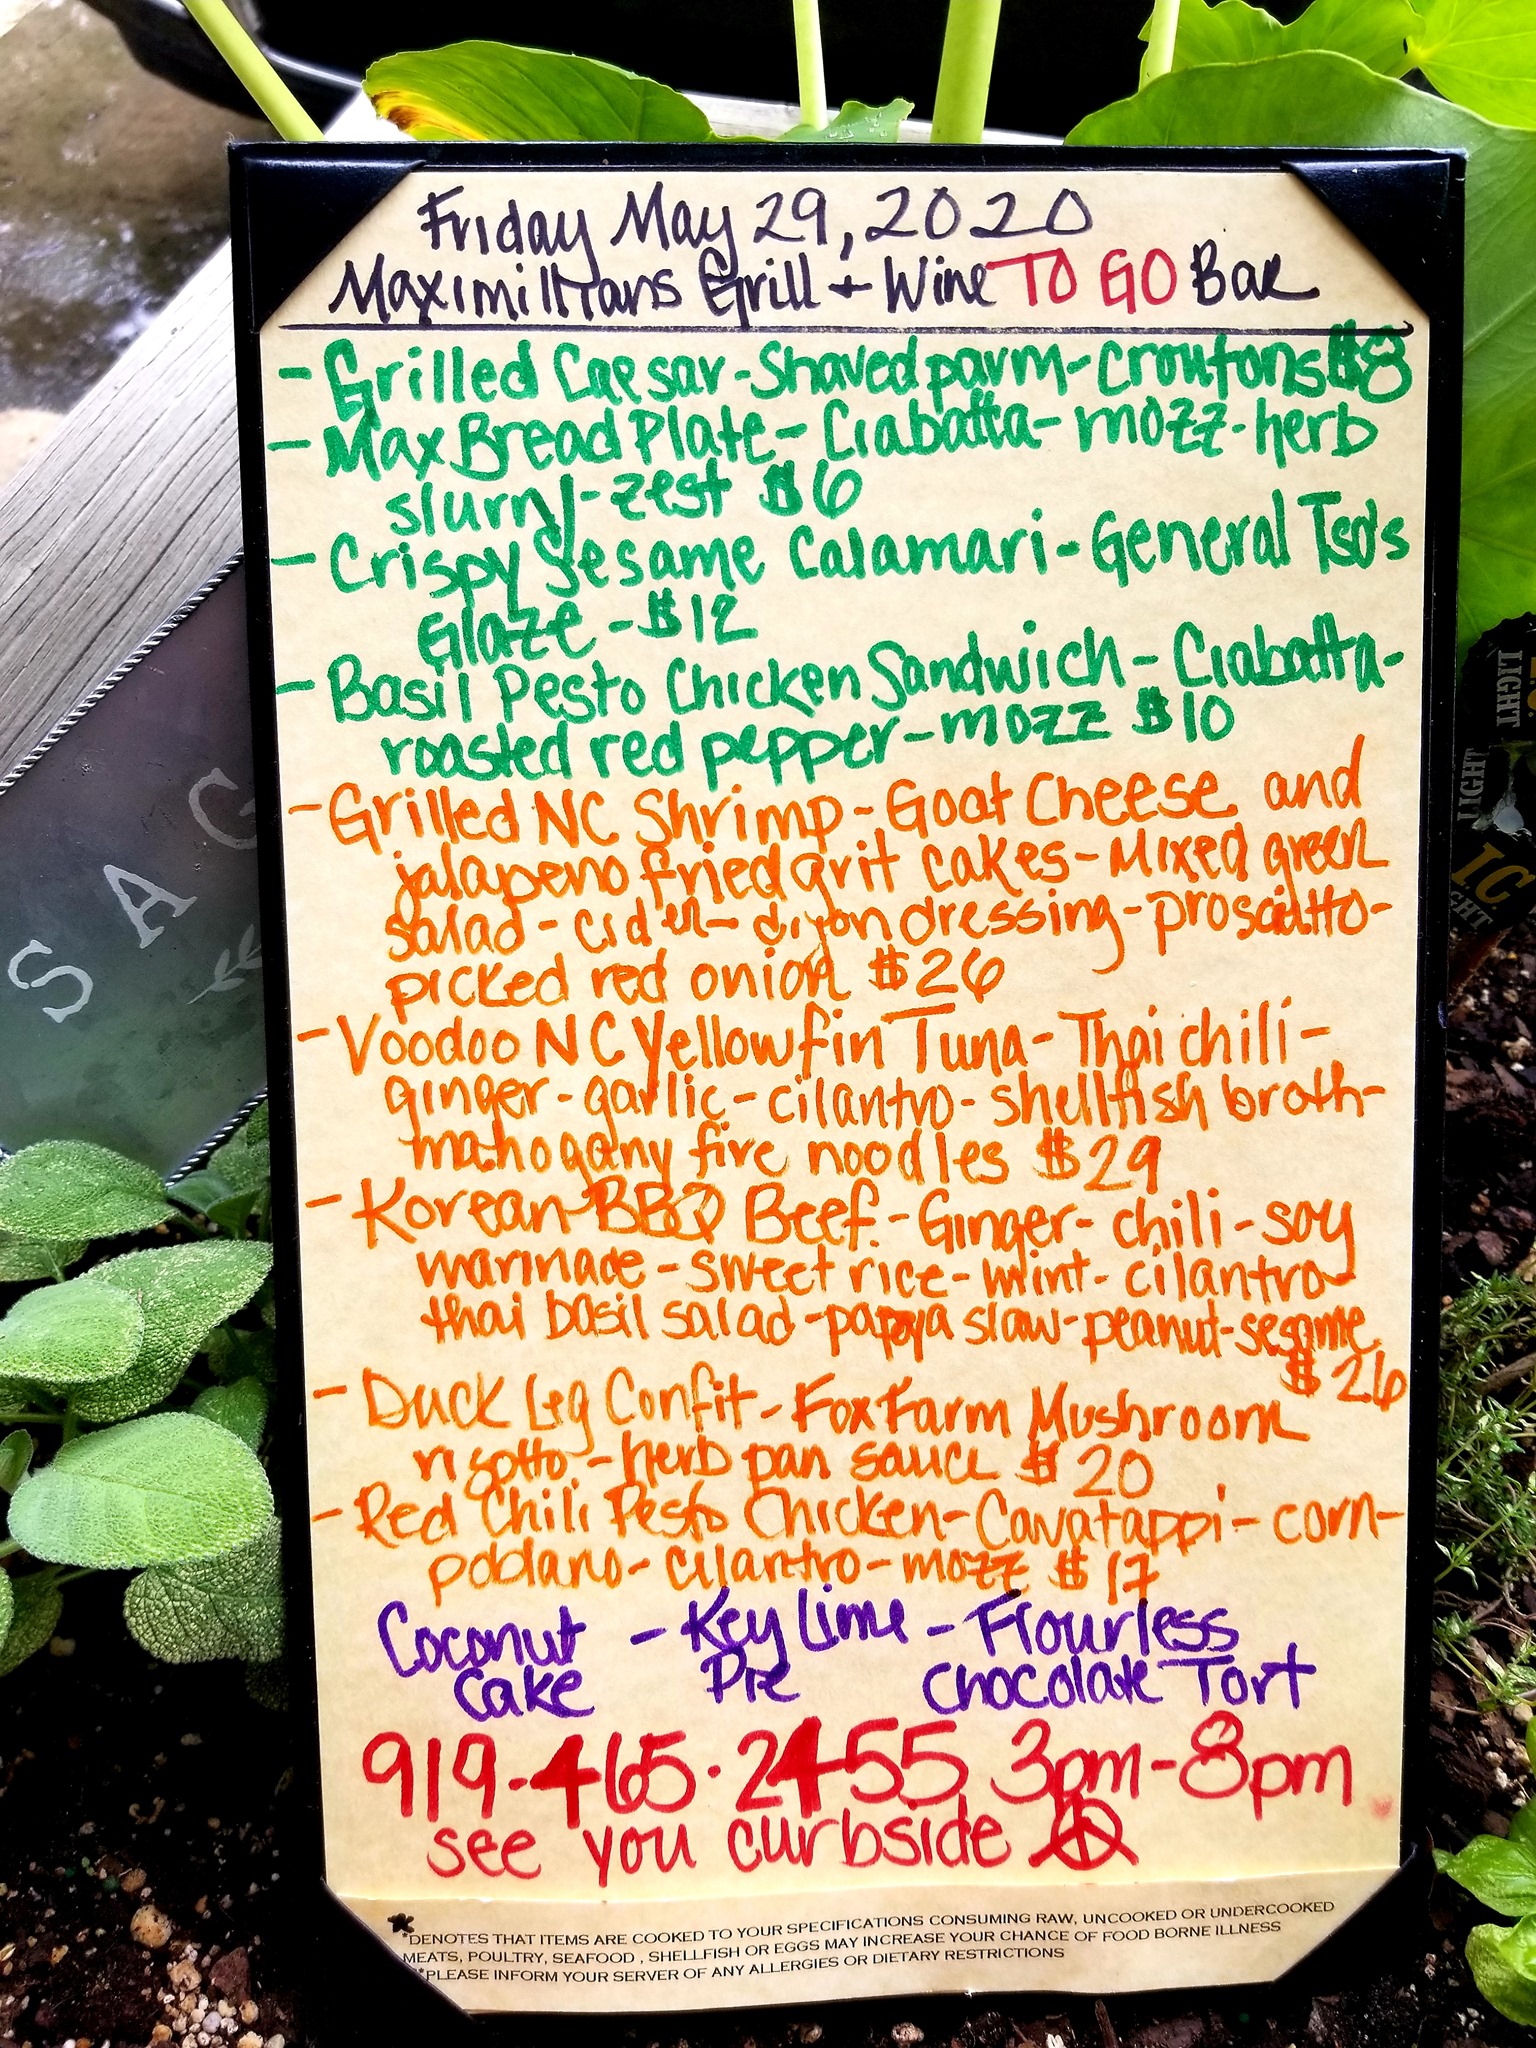 Friday May 29, 2020
Maximillians Grill + Wine TO GO Bar
- Grilled Caesar - Shaved parm - croutons $8
- Max Bread Plate - Ciabatta - mozz - herb
slurry - zest $6
- Crispy Sesame Calamari - General Tso's
Glaze - $12
- Basil Pesto Chicken Sandwich - Ciabatta -
roasted red pepper - mozz $10
- Grilled NC Shrimp - Goat Cheese and
jalapeno fried grit cakes - Mixed green
salad - cider - dijon dressing - prosciutto -
picked red onion $26
- Voodoo NC Yellowfin Tuna - Thai chili -
ginger - garlic - cilantro - shellfish broth -
mahogany fire noodles $29
- Korean BBQ Beef - Ginger - chili - soy
marinade - sweet rice - mint - cilantro
thai basil salad - papaya slaw - peanut - sesame
$26
- Duck Leg Confit - Fox Farm Mushroom
risotto - herb pan sauce $20
- Red Chili Pesto Chicken - Cavatappi - corn -
poblano - cilantro - mozz $17
Coconut - Key Lime - Flourless
Cake Pie Chocolate Tort
919-465-2455 3pm-8pm
see you curbside
*DENOTES THAT ITEMS ARE COOKED TO YOUR SPECIFICATIONS CONSUMING RAW, UNCOOKED OR UNDERCOOKED
MEATS, POULTRY, SEAFOOD , SHELLFISH OR EGGS MAY INCREASE YOUR CHANCE OF FOOD BORNE ILLNESS
*PLEASE INFORM YOUR SERVER OF ANY ALLERGIES OR DIETARY RESTRICTIONS
SAG
LIGHT
LIGHT
IC
GHT